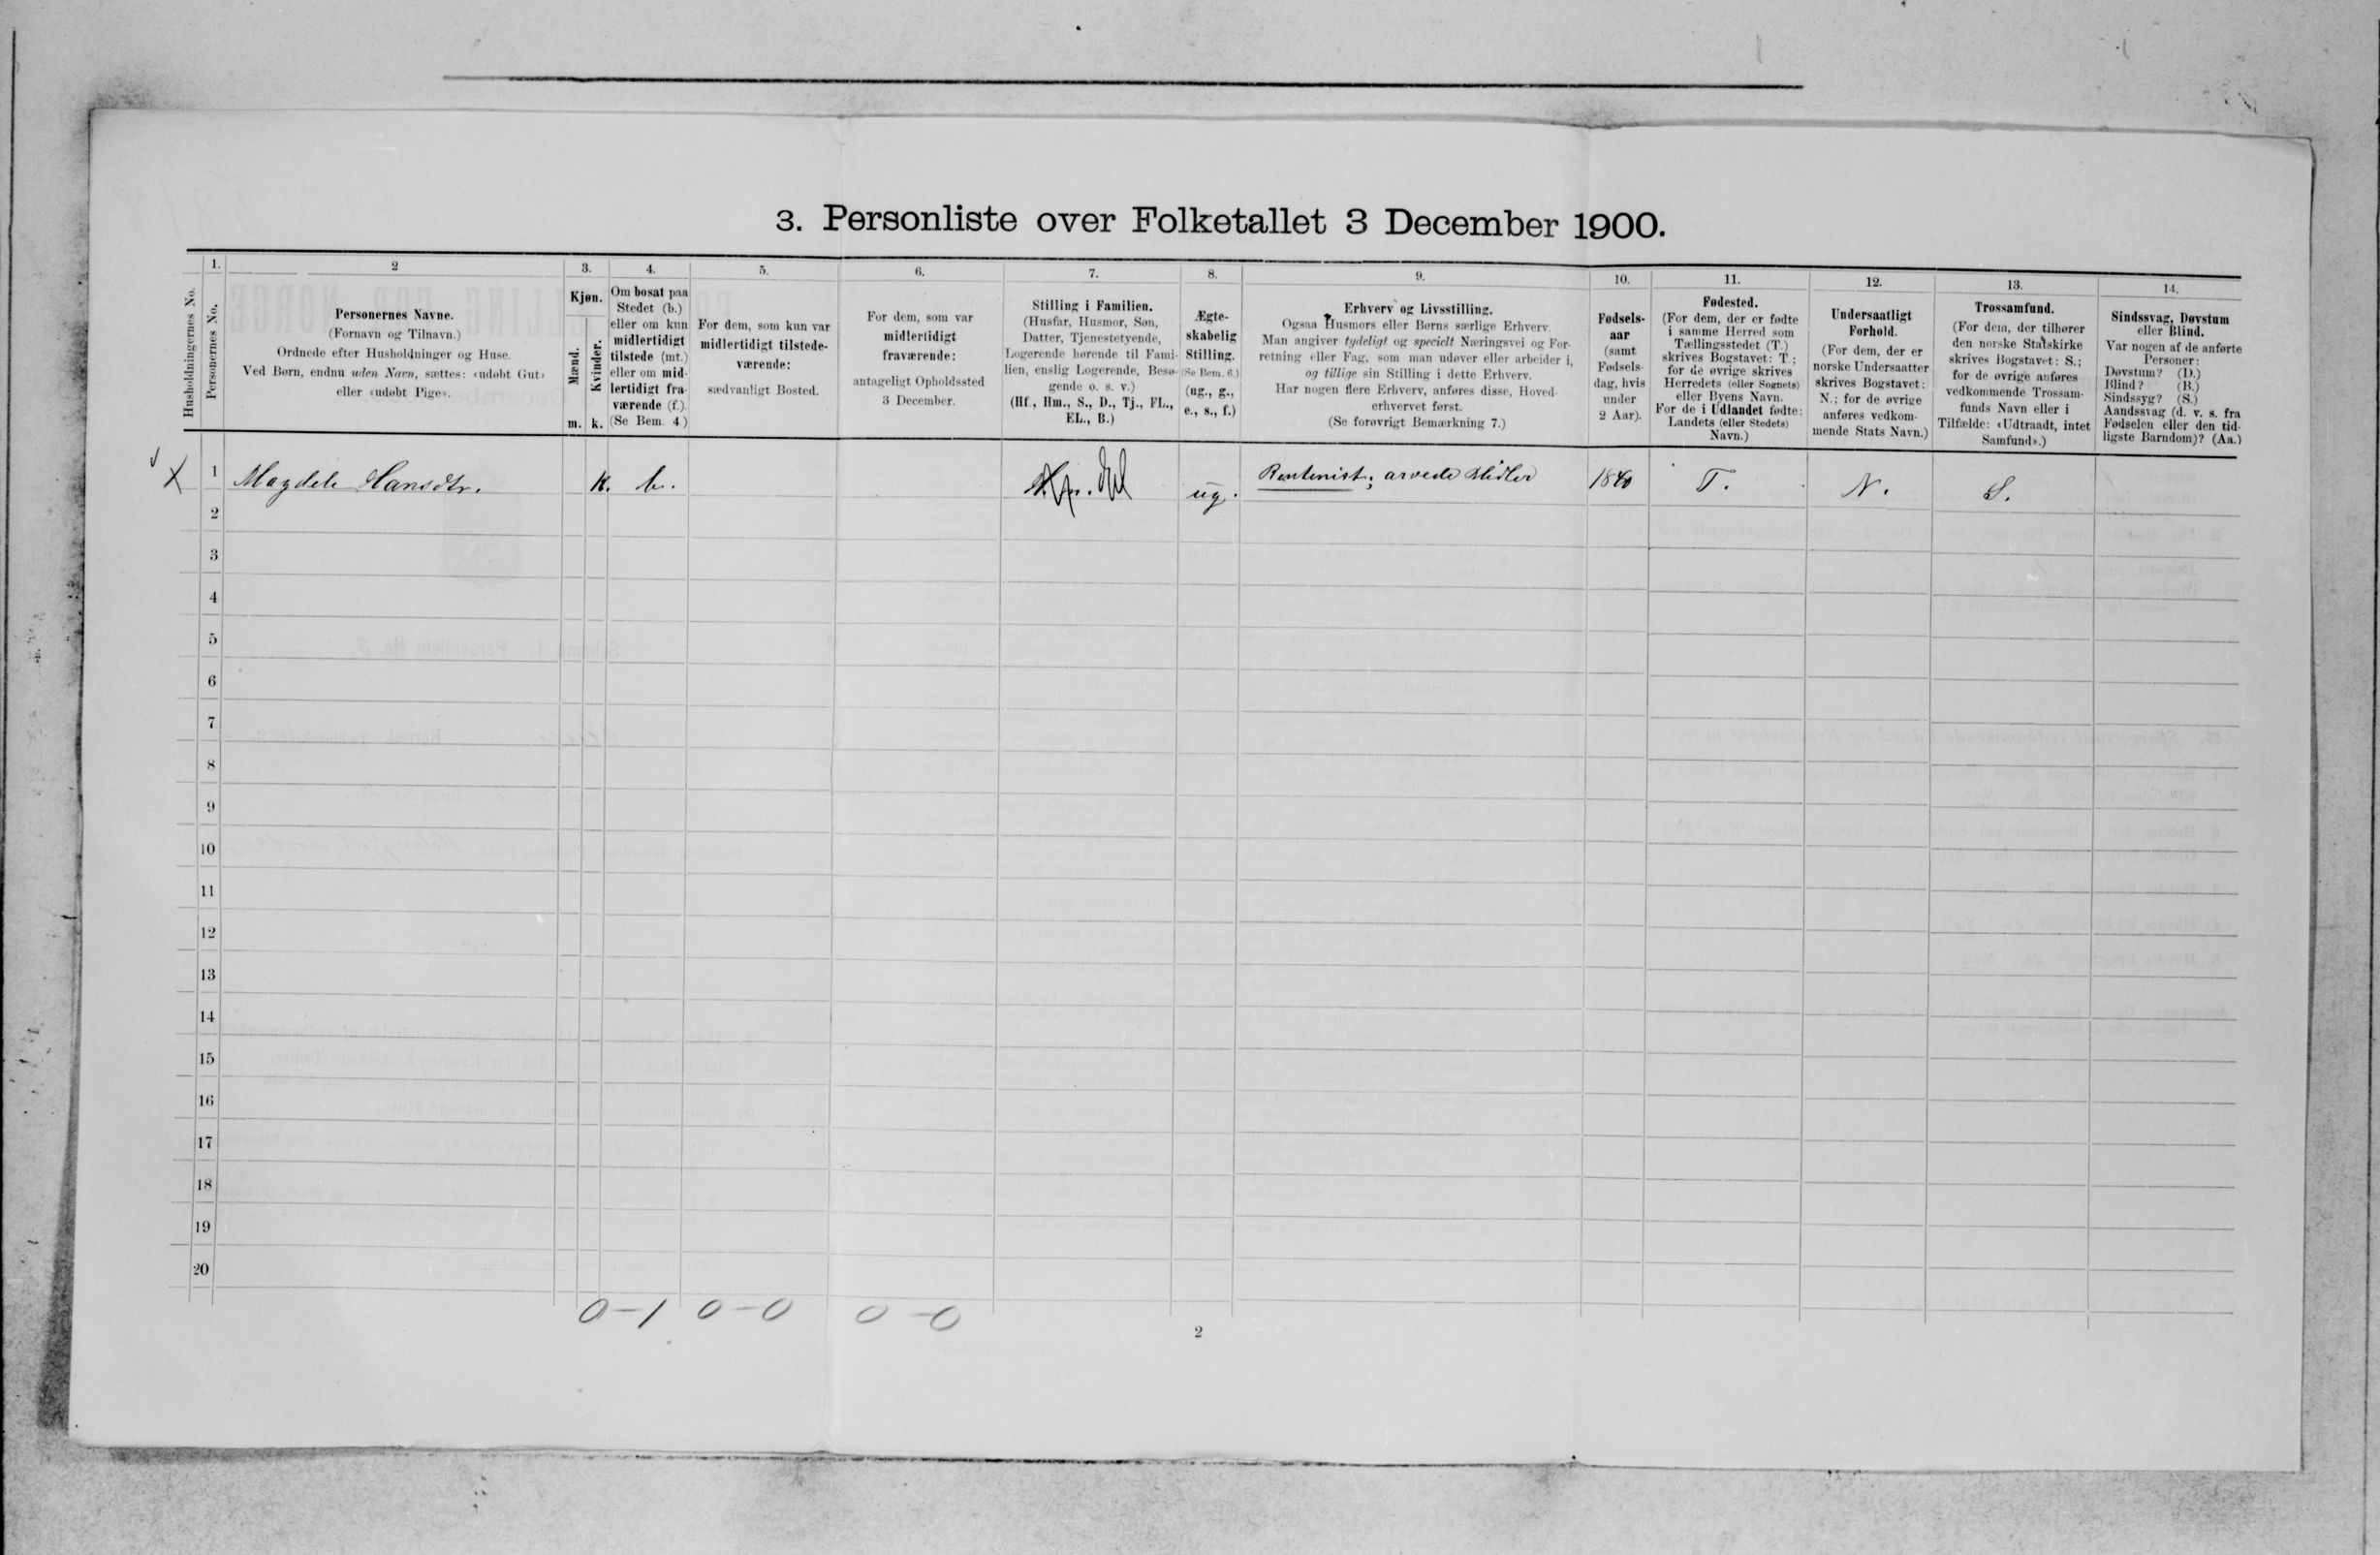 3. Personliste over Folketallet 3 December 1900.
1. 2 3. 4. 5. 6. 7. 8. 9. 10. 11. 12. 13. 14.
Husholdningernes No.
Personernes No.
Personernes Navne.
(Fornavn og Tilnavn.)
Ordnede efter Husholdninger og Huse.
Ved Børn, endnu uden Navn, sættes: «udøbt Gut»
eller «udøbt Pige».
Kjøn.
Mænd.
Kvinder.
m. k.
Om bosat paa
Stedet (b.)
eller om kun
midlertidigt
tilstede (mt.)
eller om mid-
lertidigt fra-
værende (f.).
(Se Bem. 4.)
For dem, som kun var
midlertidigt tilstede-
værende:
sædvanligt Bosted.
For dem, som var
midlertidigt
fraværende:
antageligt Opholdssted
3 December.
Stilling i Familien.
(Husfar, Husmor, Søn,
Datter, Tjenestetyende,
Logerende hørende til Fami-
lien, enslig Logerende, Besø-
gende o. s. v.)
(Hf., Hm., S., D., Tj., FL.,
EL., B.)
Ægte-
skabelig
Stilling.
(Se Bem. 6.)
(ug., g.,
e., s., f.)
Erhverv og Livsstilling.
Ogsaa Husmors eller Børns særlige Erhverv.
Man angiver tydeligt og specielt Næringsvei og For-
retning eller Fag, som man udøver eller arbeider i,
og tillige sin Stilling i dette Erhverv.
Har nogen flere Erhverv, anføres disse, Hoved-
erhvervet først.
(Se forøvrigt Bemærkning 7.)
Fødsels-
aar
(samt
Fødsels-
dag, hvis
under
2 Aar).
Fødested.
(For dem, der er fødte
i samme Herred som
Tællingsstedet (T.)
skrives Bogstavet: T.;
for de øvrige skrives
Herredets (eller Sognets)
eller Byens Navn.
For de i Udlandet fødte:
Landets (eller Stedets)
Navn.)
Undersaatligt
Forhold.
(For dem, der er
norske Undersaatter
skrives Bogstavet:
N.; for de øvrige
anføres vedkom-
mende Stats Navn.)
Trossamfund.
(For dem, der tilhører
den norske Statskirke
skrives Bogstavet: S.;
for de øvrige anføres
vedkommende Trossam-
funds Navn eller i
Tilfælde: «Udtraadt, intet
Samfund».)
Sindssvag, Døvstum
eller Blind.
Var nogen af de anførte
Personer:
Døvstum? (D.)
Blind? (B.)
Sindssyg? (S.)
Aandssvag (d. v. s. fra
Fødselen eller den tid-
ligste Barndom)? (Aa.)
X 1 Magdele Hansdtr. k. b. ug. Rentenist; arvede Midler 1840 T. N. S.
2
3
4
5
6
7
8
9
10
11
12
13
14
15
16
17
18
19
20
0-1 0-0 0-0
2